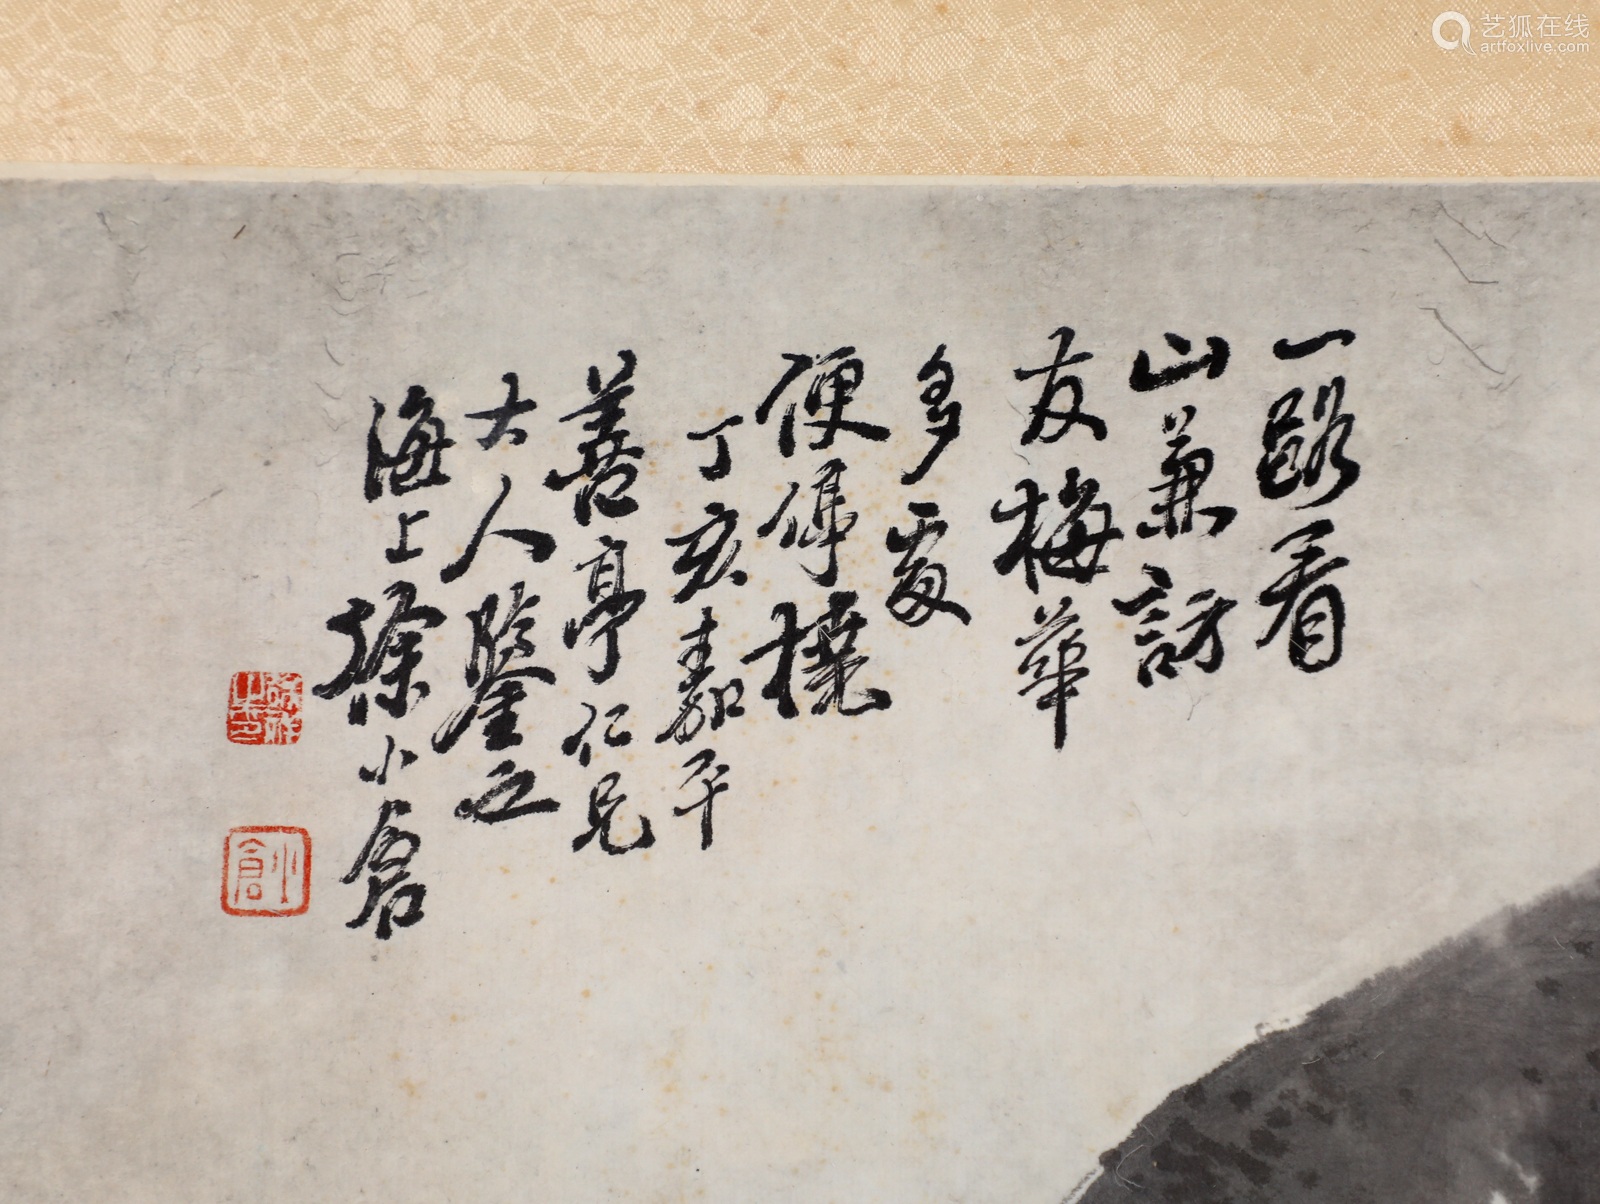 一路看
山兼訪
友梅華
多處
便停橈
丁亥嘉平
善亭仁兄
大人鑒之
海上徐小倉
小倉
艺狐在线
artfoxlive.com